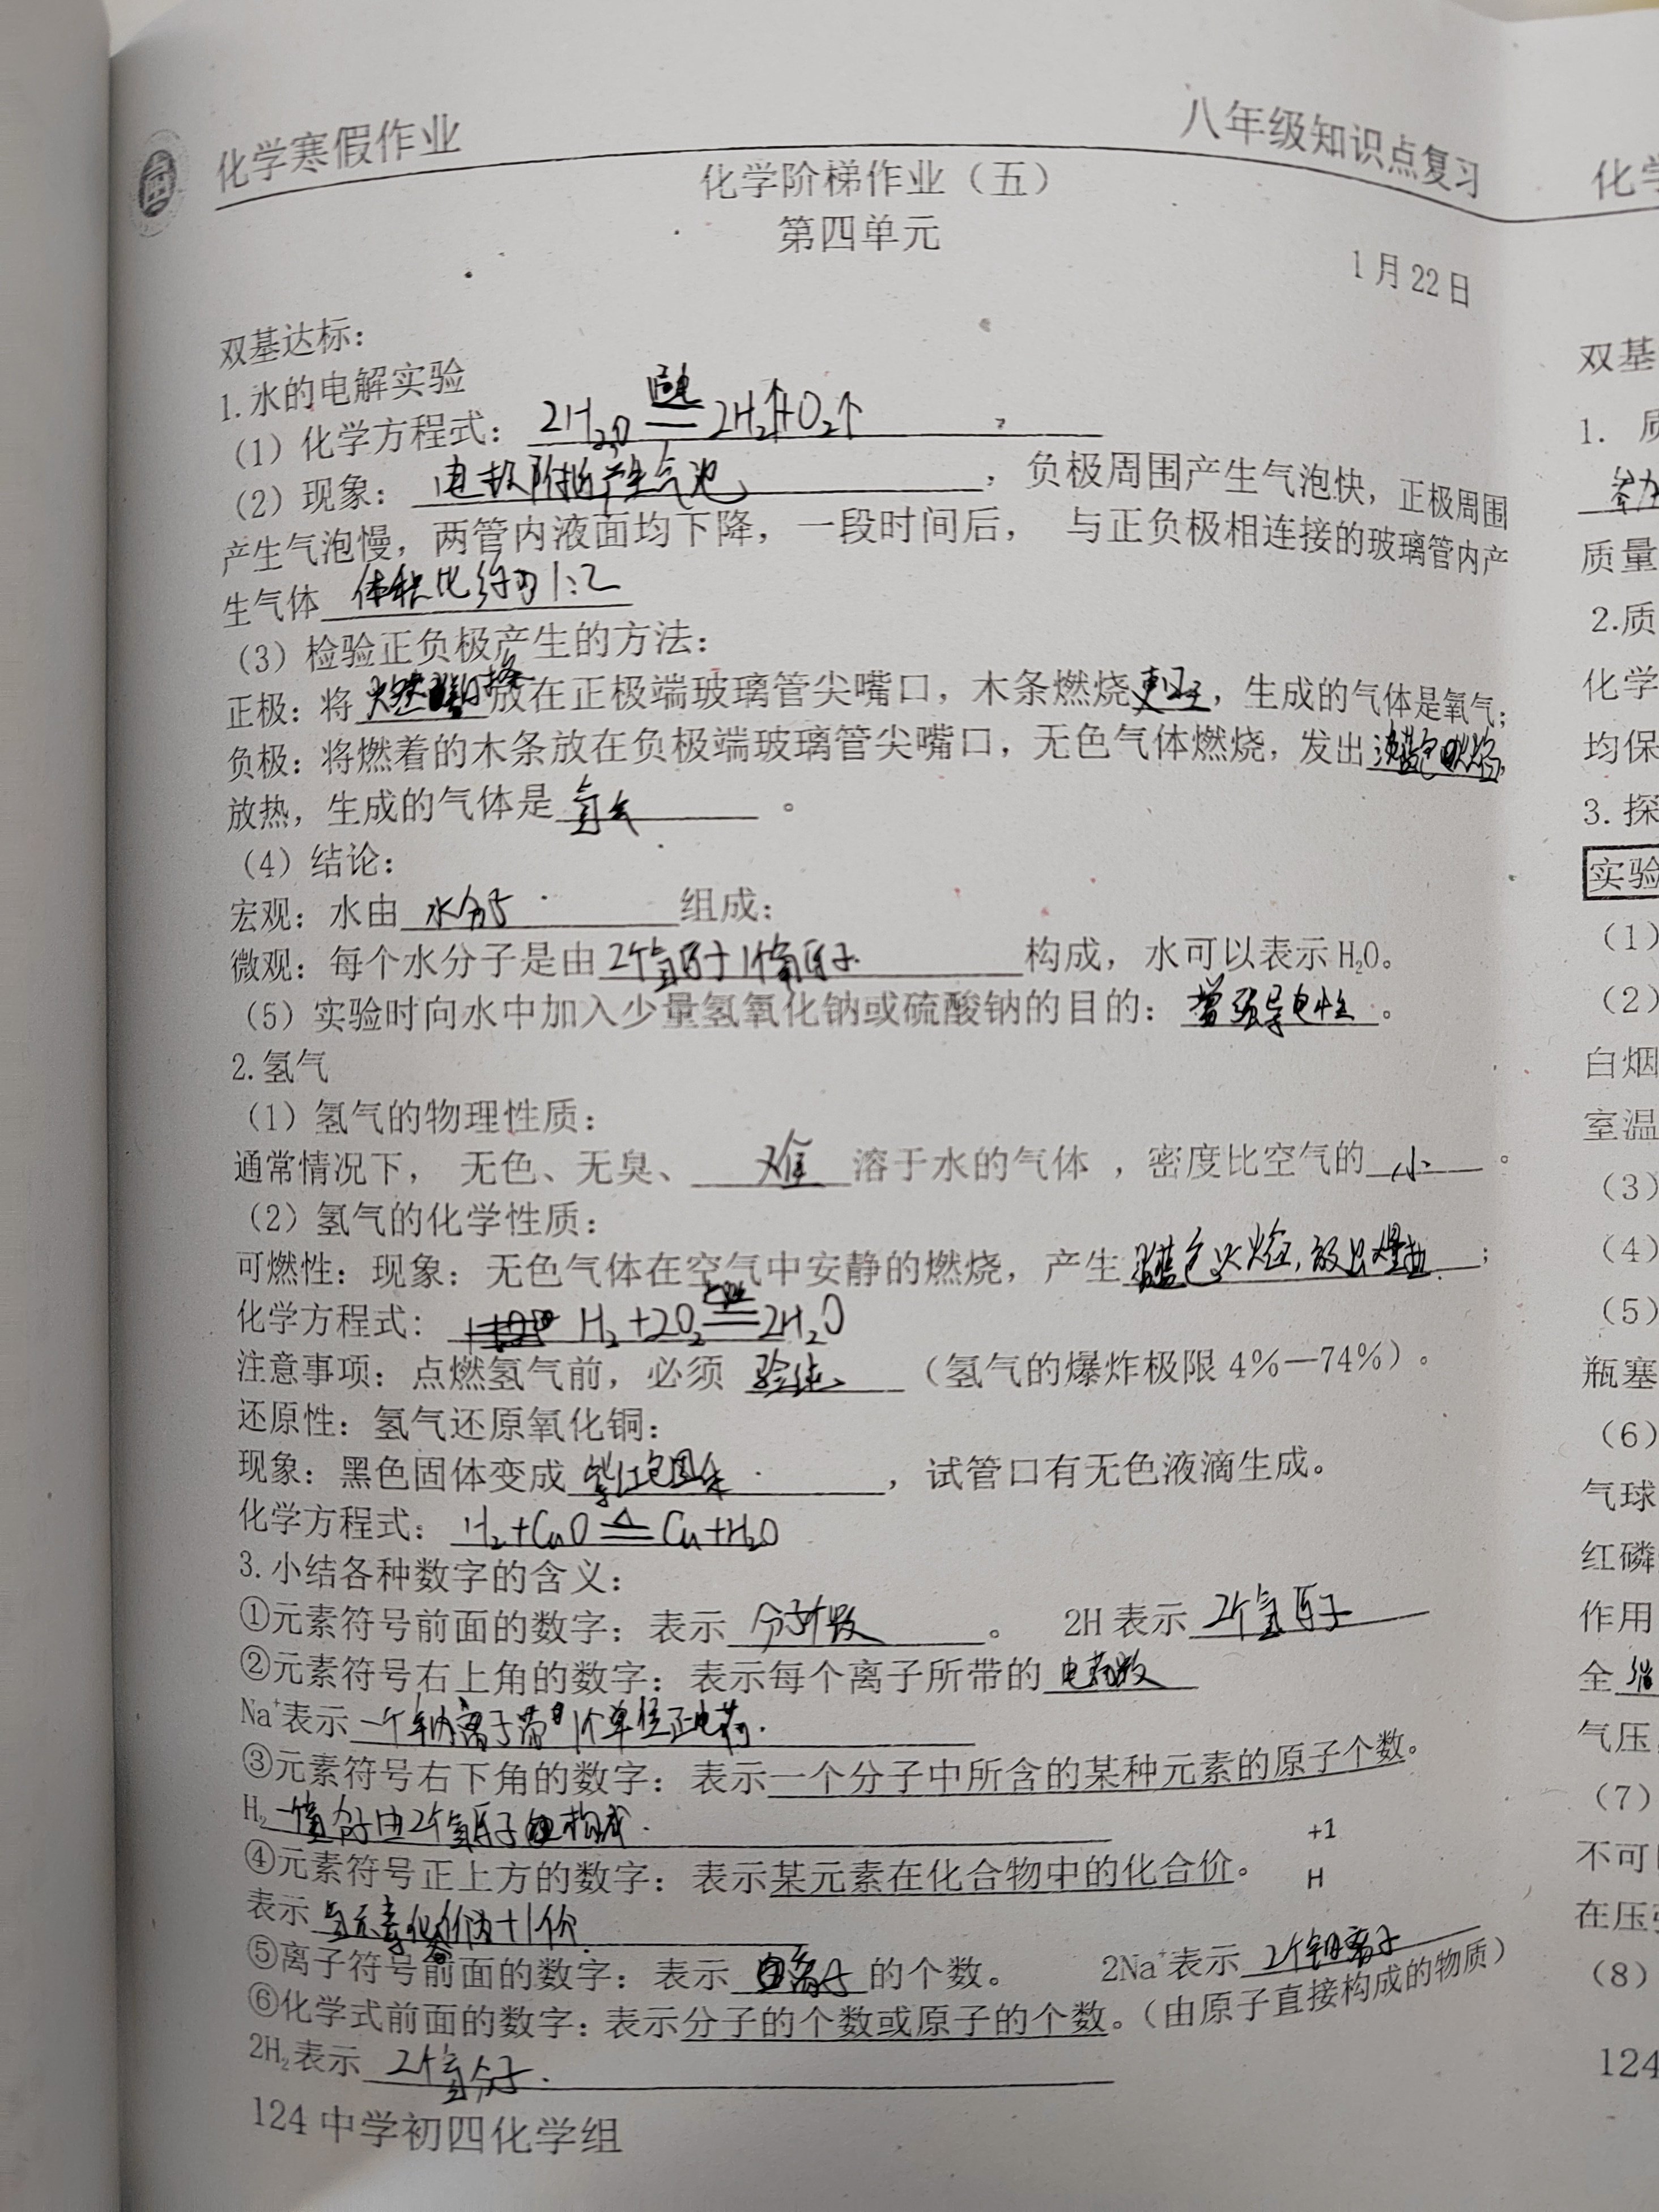 化学寒假作业
八年级知识点复习
化学阶梯作业（五）
第四单元
1月22日
双基达标：
1.水的电解实验
（1）化学方程式：2H₂O 通电 2H₂↑+O₂↑，
（2）现象：电极附近产生气泡，负极周围产生气泡快，正极周围
产生气泡慢，两管内液面均下降，一段时间后，与正负极相连接的玻璃管内产
生气体体积比约为1:2
（3）检验正负极产生的方法：
正极：将燃着的木条放在正极端玻璃管尖嘴口，木条燃烧更旺，生成的气体是氧气；
负极：将燃着的木条放在负极端玻璃管尖嘴口，无色气体燃烧，发出淡蓝色火焰，
放热，生成的气体是氢气。
（4）结论：
宏观：水由水分子组成；
微观：每个水分子是由2个氢原子1个氧原子构成，水可以表示H₂O。
（5）实验时向水中加入少量氢氧化钠或硫酸钠的目的：增强导电性。
2.氢气
（1）氢气的物理性质：
通常情况下，无色、无臭、难溶于水的气体，密度比空气的小。
（2）氢气的化学性质：
可燃性：现象：无色气体在空气中安静的燃烧，产生淡蓝色火焰，放出热量；
化学方程式：H₂+2O₂ 点燃 2H₂O
注意事项：点燃氢气前，必须验纯（氢气的爆炸极限4%—74%）。
还原性：氢气还原氧化铜：
现象：黑色固体变成紫红色固体，试管口有无色液滴生成。
化学方程式：H₂+CuO △ Cu+H₂O
3.小结各种数字的含义：
①元素符号前面的数字：表示分子个数。 2H表示2个氢原子
②元素符号右上角的数字：表示每个离子所带的电荷数
Na⁺表示一个钠离子带1个单位正电荷.
③元素符号右下角的数字：表示一个分子中所含的某种元素的原子个数。
H₂一个氢分子由2个氢原子构成.
+1
④元素符号正上方的数字：表示某元素在化合物中的化合价。 H
表示氢元素化合价为+1价.
⑤离子符号前面的数字：表示离子的个数。 2Na⁺表示2个钠离子
⑥化学式前面的数字：表示分子的个数或原子的个数。（由原子直接构成的物质）
2H₂表示2个氢分子.
124中学初四化学组
双基
1.
质量
2.质
化学
均保
3.探
实验
（1）
（2）
白烟
室温
（3）
（4）
（5）
瓶塞
（6）
气球
红磷
作用
全
气压
（7）
不可
在压
（8）
124